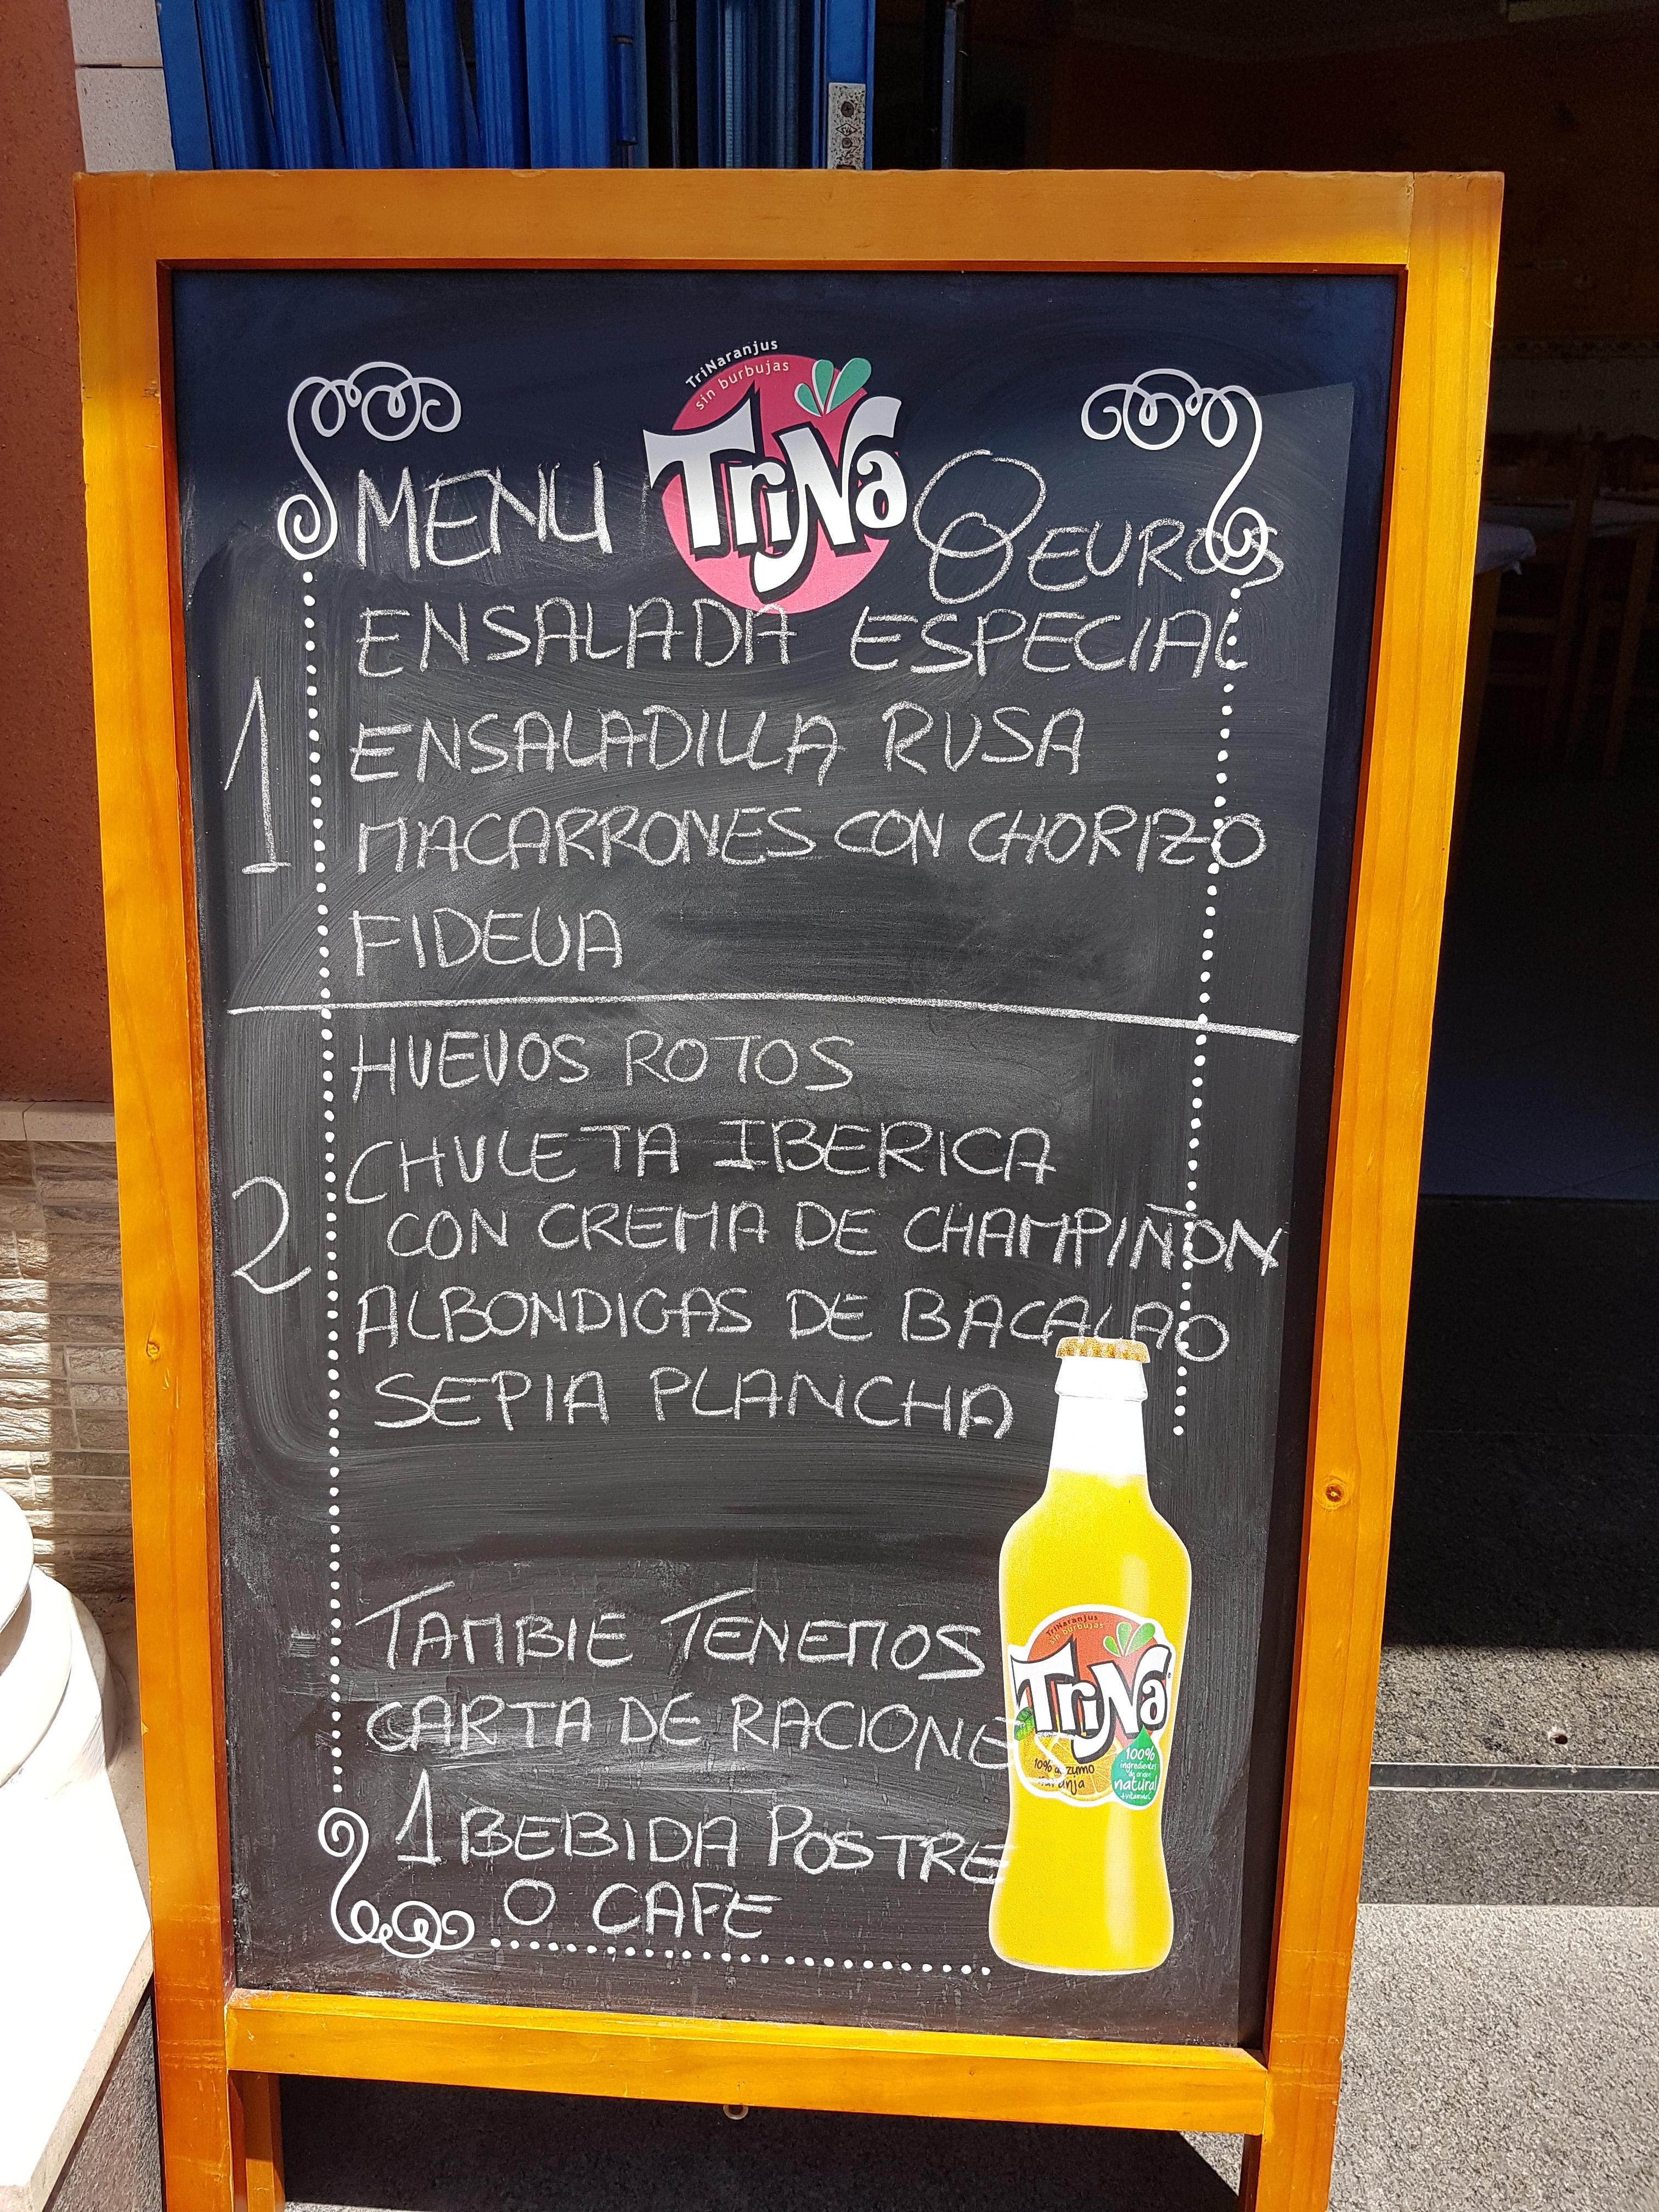 TriNaranjus
sin burbujas
TriNa
MENU 8 EUROS
ENSALADA ESPECIAL
1
ENSALADILLA RUSA
MACARRONES CON CHORIZO
FIDEUA
HUEVOS ROTOS
CHULETA IBERICA
2
CON CREMA DE CHAMPIÑON
ALBONDIGAS DE BACALAO
SEPIA PLANCHA
TAMBIE TENEMOS
CARTA DE RACIONES
1 BEBIDA POSTRE
O CAFE
TriNaranjus
sin burbujas
TriNa
10% zumo
naranja
100%
ingredientes
de origen
natural